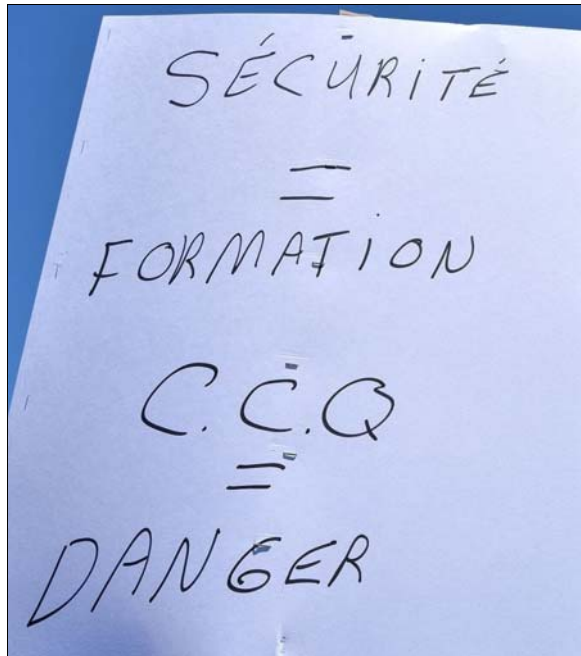 SÉCURITÉ
=
FORMATION
C.C.Q
=
DANGER